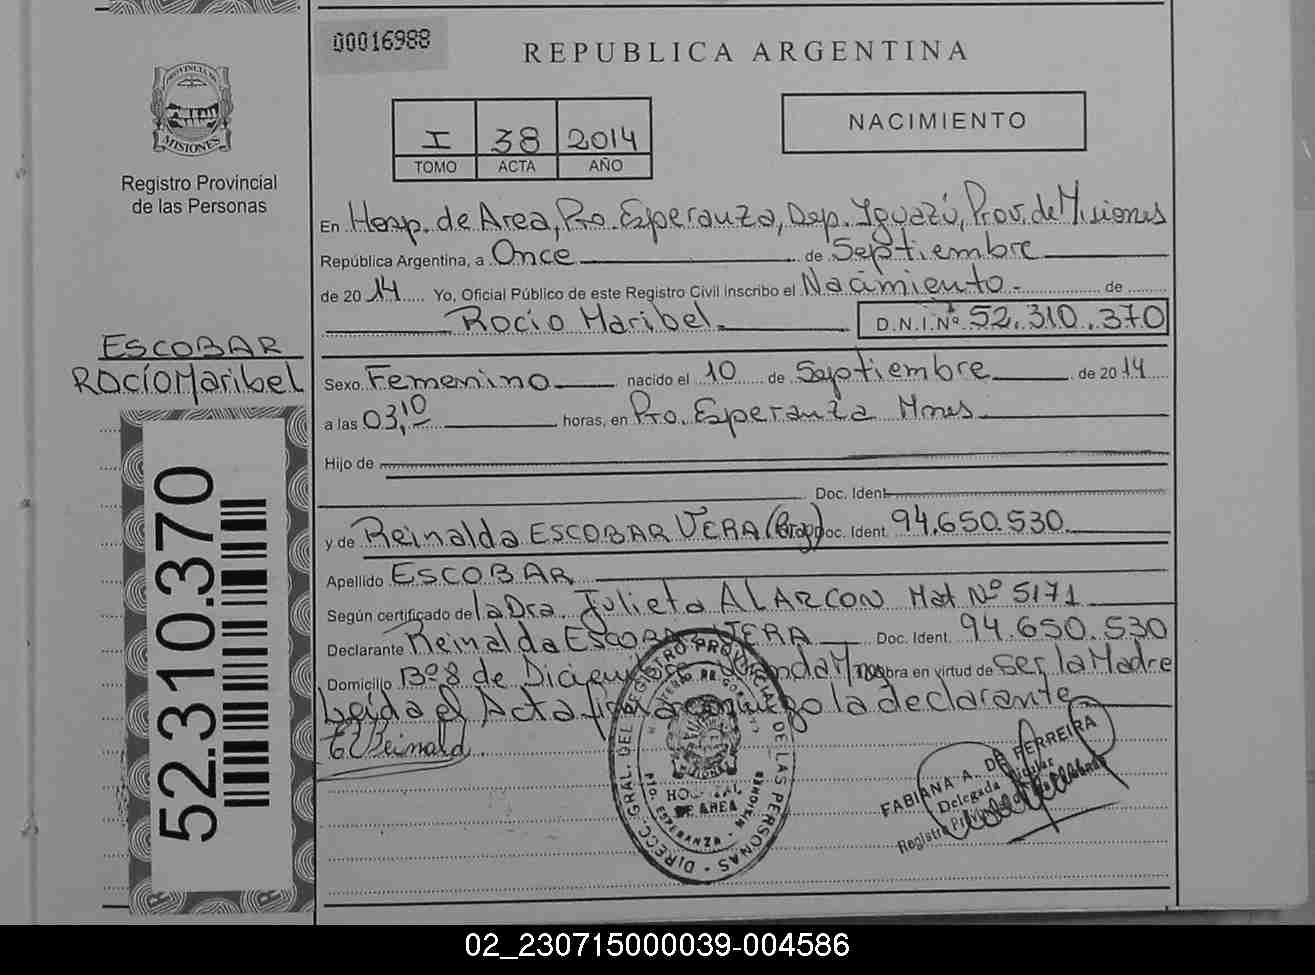 00016988
REPUBLICA ARGENTINA
PROVINCIA DE
MISIONES
Registro Provincial
de las Personas
I 38 2014
TOMO ACTA AÑO
NACIMIENTO
En Hosp. de Area, Pto. Esperanza, Dep. Iguazú, Prov. de Misiones
República Argentina, a Once de Septiembre
de 2014 Yo, Oficial Público de este Registro Civil inscribo el Nacimiento de
Rocío Maribel D.N.I. Nº 52.310.370
ESCOBAR
ROCÍO Maribel
Sexo Femenino nacido el 10 de Septiembre de 2014
a las 03,10 horas, en Pto. Esperanza Mnes
Hijo de
Doc. Ident
y de Reinalda ESCOBAR VERA (Prog) Doc. Ident. 94.650.530
Apellido ESCOBAR
Según certificado de la Dra. Julieta ALARCON Mat Nº 5171
Declarante Reinalda ESCOBAR VERA Doc. Ident. 94.650.530
Domicilio Bº 8 de Diciembre Wanda Mnes obra en virtud de Ser la Madre
Leída el Acta firma conmigo la declarante
52.310.370
DIRECC. GRAL. DEL REGISTRO PROVINCIAL DE LAS PERSONAS
HOSPITAL
DE AREA
PTO. ESPERANZA - MISIONES
FABIANA A. DE FERREIRA
Delegada Titular
Registro Provincial de las Personas
02_230715000039-004586